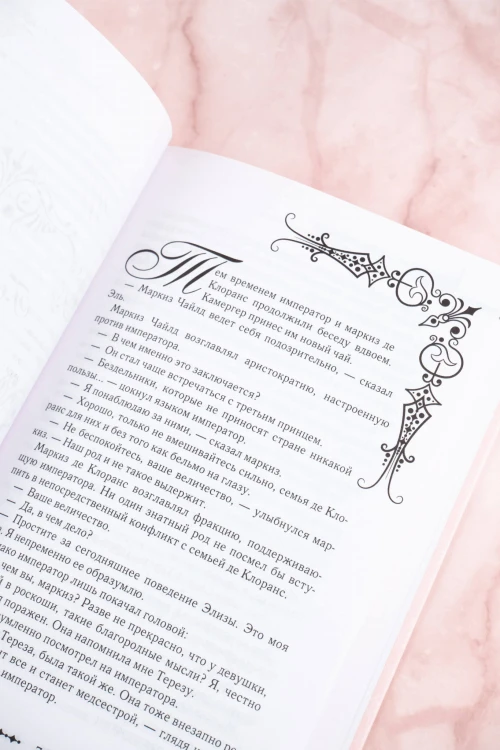 Тем временем император и маркиз де
Клоранс продолжили беседу вдвоем.
Камергер принес им новый чай.
— Маркиз Чайлд ведет себя подозрительно, — сказал
Эль.
Маркиз Чайлд возглавлял аристократию, настроенную
против императора.
— В чем именно это заключается?
— Он стал чаще встречаться с третьим принцем.
— Бездельники, которые не приносят стране никакой
пользы... — цокнул языком император.
— Я понаблюдаю за ними, — сказал маркиз.
— Хорошо, только не вмешивайтесь сильно, семья де Кло-
ранс для них и без того как бельмо на глазу.
— Не беспокойтесь, ваше величество, — улыбнулся мар-
киз. — Наш род и не такое выдержит.
Маркиз де Клоранс возглавлял фракцию, поддерживаю-
щую императора. Ни один знатный род не посмел бы всту-
пить в непосредственный конфликт с семьей де Клоранс.
— Ваше величество.
— Да, в чем дело?
— Простите за сегодняшнее поведение Элизы. Это моя
Я непременно ее образумлю.
император лишь покачал головой:
чем вы, маркиз? Разве не прекрасно, что у девушки,
в роскоши, такие благородные мысли? Я, честно
поражен. Она напомнила мне Терезу.
посмотрел на императора.
Тереза, была такой же. Она тоже внезапно
все и станет медсестрой, — глядя
император.